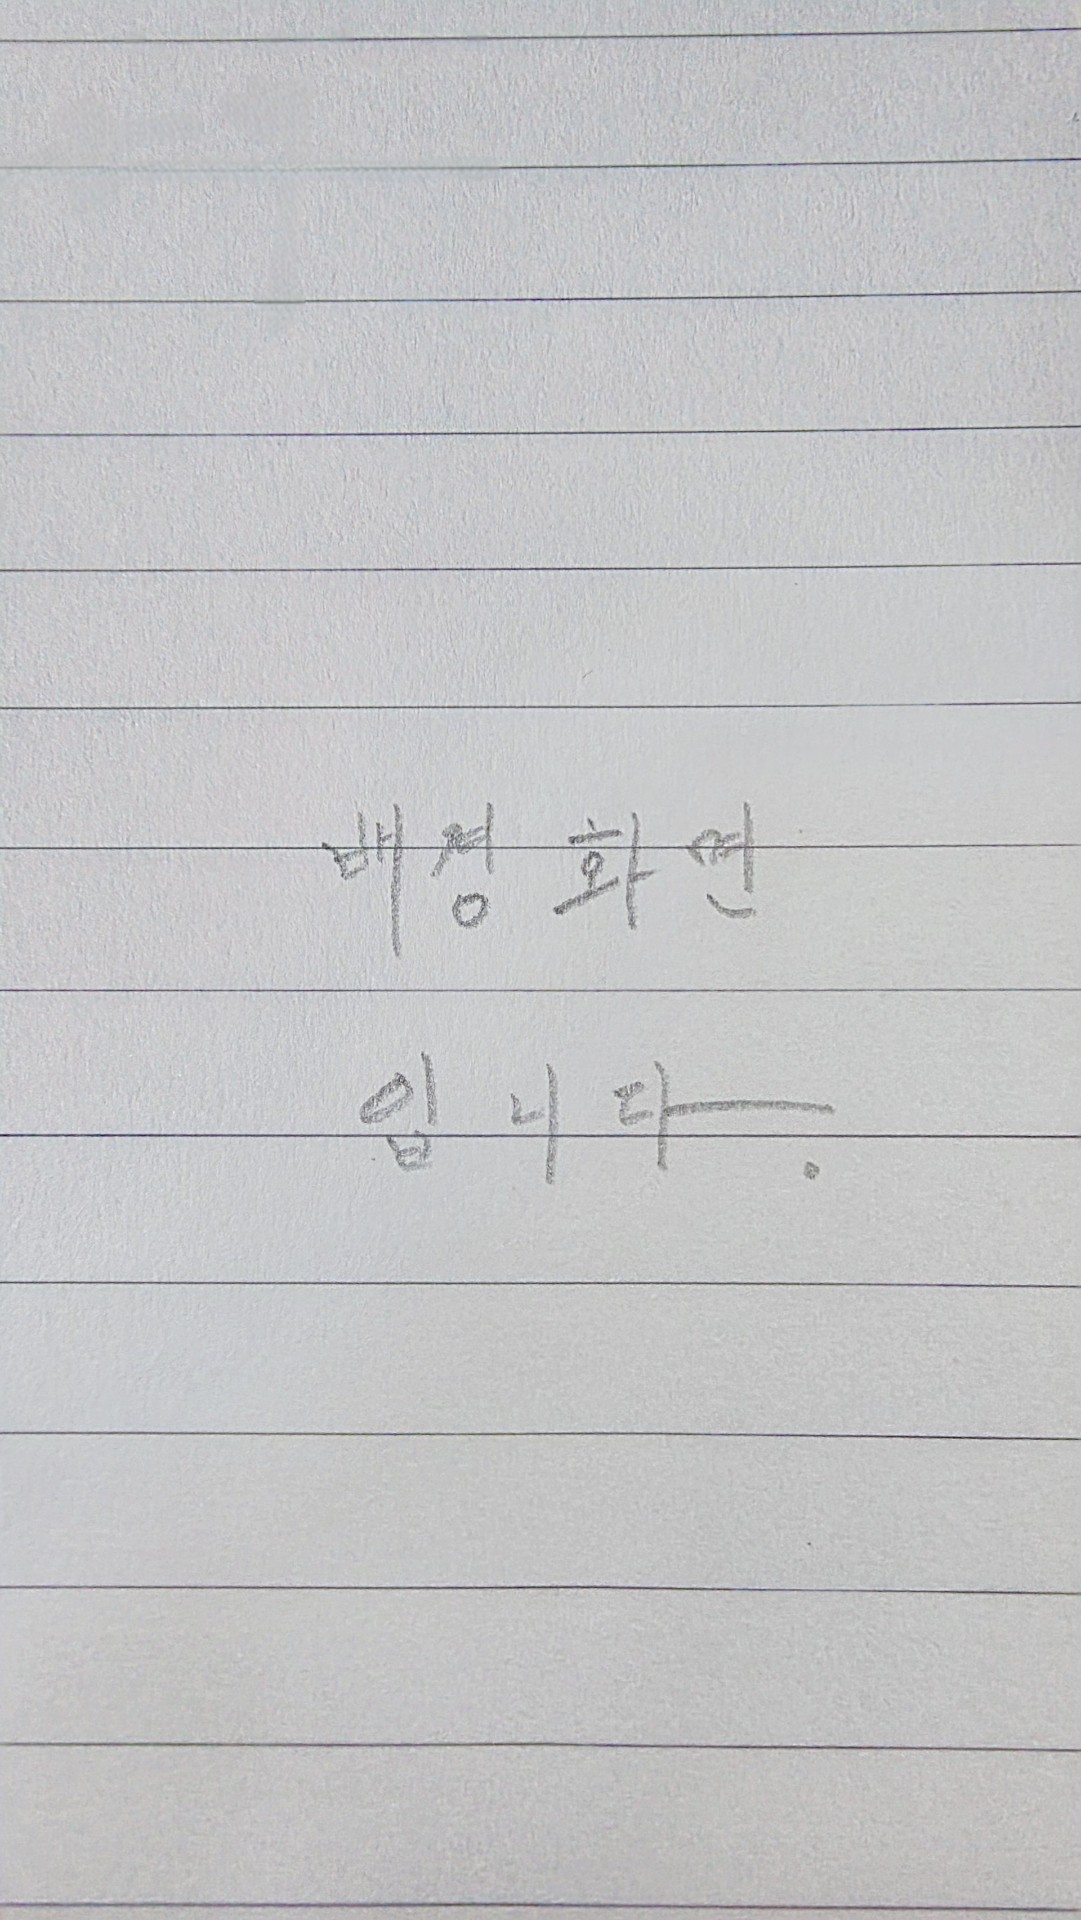 배경 화면
입니다.